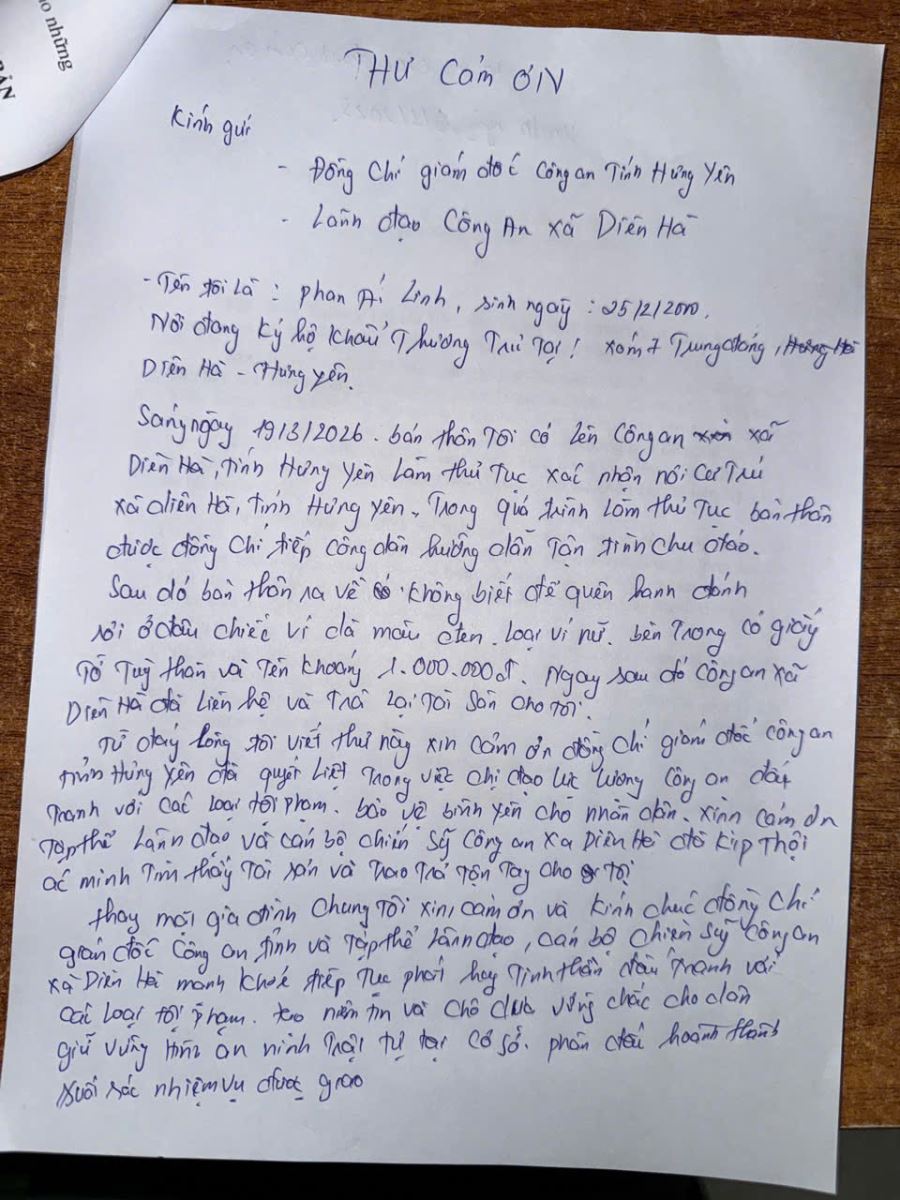 ho những
BẢN
THƯ CẢM ƠN
Kính gửi
- Đồng Chí giám đốc Công an Tỉnh Hưng Yên
- Lãnh đạo Công An xã Diên Hà
- Tên tôi là : phan Ái Linh, sinh ngày : 25/2/2000.
Nơi đăng ký hộ khẩu Thường Trú Tại ! xóm 7 Trung đẳng,
Diên Hà - Hưng Yên.
Sáng ngày 19/3/2026. bản thân Tôi có lên Công an xã
Diên Hà, tỉnh Hưng Yên Làm thủ Tục xác nhận nơi Cư Trú
xã diên Hà, tỉnh Hưng Yên, Trong quá trình Làm thủ Tục bản thân
được đồng Chí tiếp công dân hướng dẫn Tận tình chu đáo.
Sau đó bản thân ra về không biết để quên hanh đánh
rơi ở đâu chiếc ví da màu đen. loại ví nữ. bên Trong có giấy
Tờ Tuỳ thân và Tiền khoảng 1.000.000đ. Ngay sau đó Công an xã
Diên Hà đã Liên hệ và Trả Lại Tài Sản cho Tôi.
Từ đáy lòng tôi viết thư này xin cảm ơn đồng chí giám đốc công an
tỉnh Hưng Yên đã quyết Liệt Trong việc chỉ đạo lực lượng Công an đấu
Tranh với các loại tội phạm. bảo vệ bình yên cho nhân dân. xinn cảm ơn
Tập thể Lãnh đạo và cán bộ chiến Sỹ Công an xa Diên Hà đã kịp Thội
ác minh Tìm thấy Tài sản và Trao Trả Tận Tay cho Tôi
thay mặt gia đình Chúng Tôi xin, cảm ơn và Kính chúc đồng Chí
giám đốc Công an tỉnh và Tập thể Lãnh đạo, cán bộ Chiến Sỹ Công an
xã Diên Hà mạnh Khoẻ tiếp Tục phát huy Tinh thần đấu Tranh với
các loại tội phạm. tạo niềm tin và chỗ dựa vững chắc cho dân
giữ vững an ninh Trật tự tại cơ sở. phấn đấu hoành thành
xuất sắc nhiệm vụ được giao